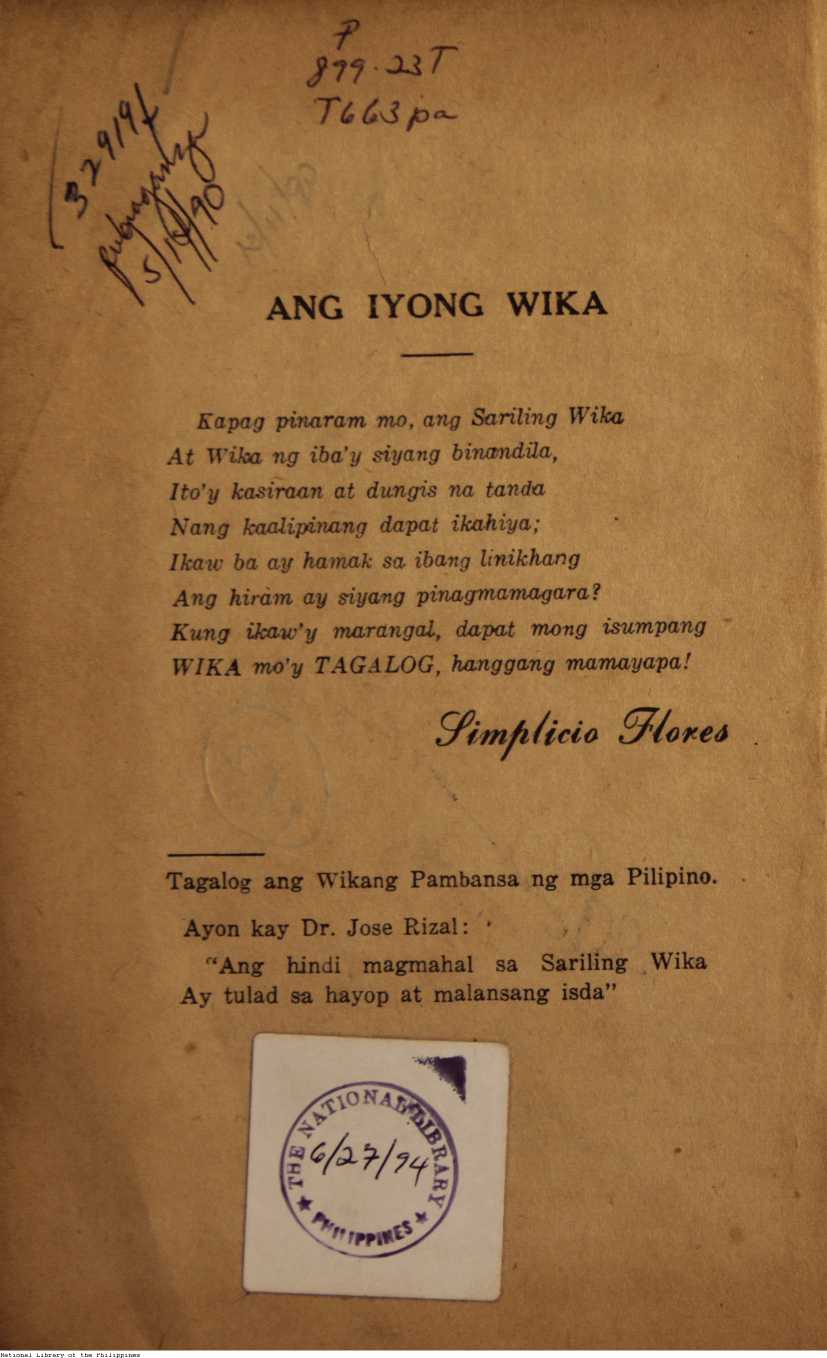 P
899.23T
T663pa
32919
5/14/90
ANG IYONG WIKA
Kapag pinaram mo, ang Sariling Wika
At Wika ng iba'y siyang binandila,
Ito'y kasiraan at dungis na tanda
Nang kaalipinang dapat ikahiya;
Ikaw ba ay hamak sa ibang linikhang
Ang hiram ay siyang pinagmamagara?
Kung ikaw'y marangal, dapat mong isumpang
WIKA mo'y TAGALOG, hanggang mamayapa!
Simplicio Flores
Tagalog ang Wikang Pambansa ng mga Pilipino.
Ayon kay Dr. Jose Rizal:
"Ang hindi magmahal sa Sariling Wika
Ay tulad sa hayop at malansang isda"
THE NATIONAL LIBRARY
6/27/94
PHILIPPINES
National Library of the Philippines